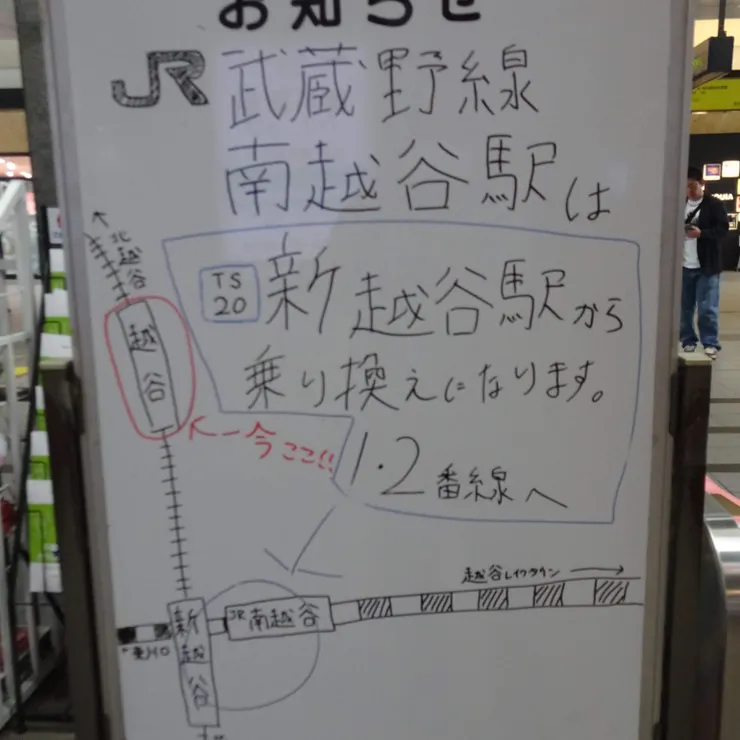 お知らせ
JR 武蔵野線
南越谷駅は
TS
20
新越谷駅から
乗り換えになります。
1・2番線へ
北越谷
越谷
←今ココ!!
越谷レイクタウン →
JR南越谷
新越谷